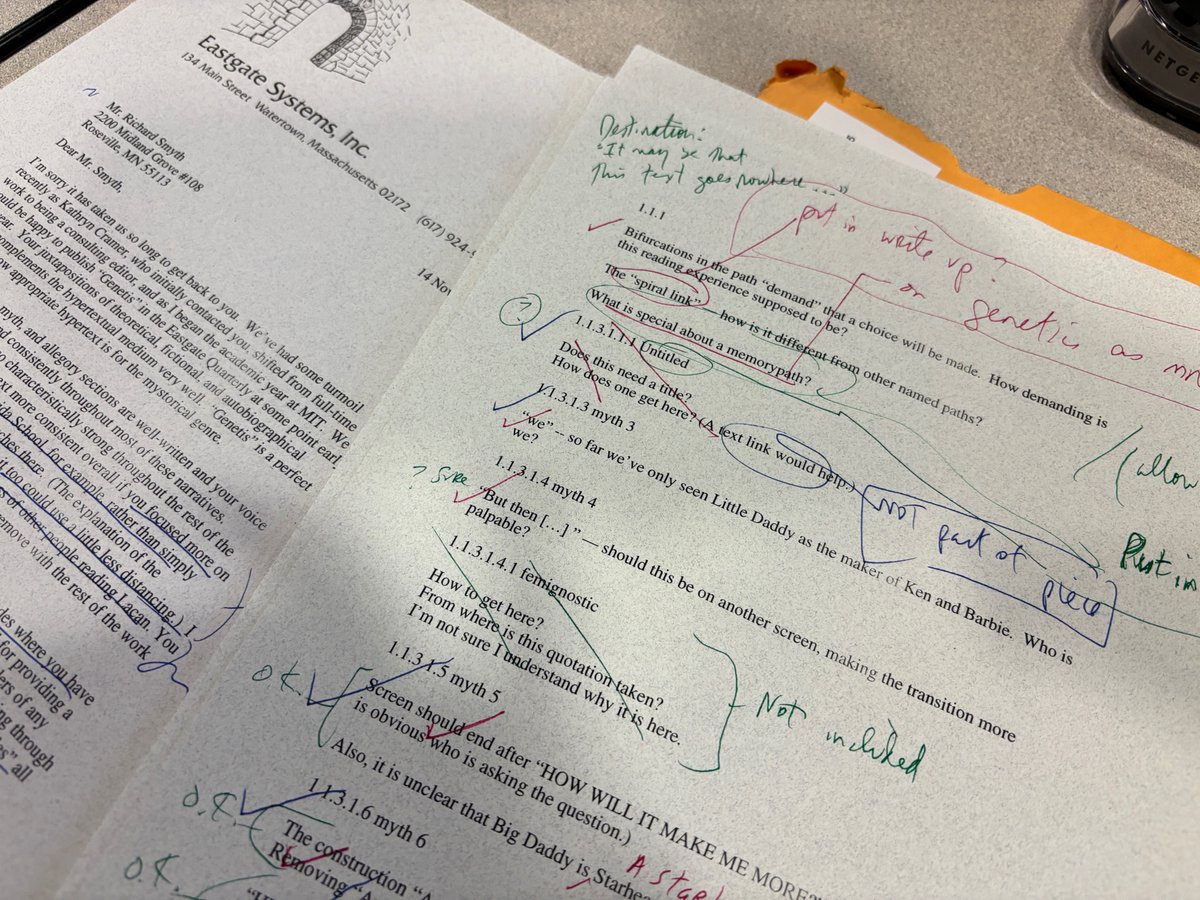 Eastgate Systems, Inc.
134 Main Street Watertown, Massachusetts 02172 (617) 924-
14 Nov
Mr. Richard Smyth
2200 Midland Grove #108
Roseville, MN 55113
Dear Mr. Smyth,
I'm sorry it has taken us so long to get back to you. We've had some turmoil
recently as Kathryn Cramer, who initially contacted you, shifted from full-time
work to being a consulting editor, and as I began the academic year at MIT. We
ould be happy to publish "Genetis" in the Eastgate Quarterly at some point earl
year. Your juxtapositions of theoretical, fictional, and autobiographical
omplements the hypertextual medium very well. "Genetis" is a perfect
ow appropriate hypertext is for the mystorical genre.
myth, and allegory sections are well-written and your voice
nd consistently throughout most of these narratives.
so characteristically strong throughout the rest of the
ext more consistent overall if you focused more on
ida School, for example, rather than simply
ches there. (The explanation of the
t too could use a little less distancing.) I
s of other people reading Lacan. You
remove with the rest of the work
des where you have
for providing a
ders of any
ng through
es" all
NETGE
5
Destination:
"It may be that
this text goes nowhere...."
1.1.1
put in write up?
Bifurcations in the path "demand" that a choice will be made. How demanding is
this reading experience supposed to be?
on genetics as
The "spiral link" — how is it different from other named paths?
What is special about a memorypath?
?
1.1.3.1.1.1 Untitled
Does this need a title?
How does one get here? (A text link would help.)
(allow
1.1.3.1.3 myth 3
"we" -- so far we've only seen Little Daddy as the maker of Ken and Barbie. Who is
we?
NOT part of piece
Put in
1.1.3.1.4 myth 4
? sure
"But then [...]" — should this be on another screen, making the transition more
palpable?
1.1.3.1.4.1 femignostic
How to get here?
From where is this quotation taken?
I'm not sure I understand why it is here.
Not included
1.1.3.1.5 myth 5
O.K.
Screen should end after "HOW WILL IT MAKE ME MORE?"
is obvious who is asking the question.)
Also, it is unclear that Big Daddy is Starhea
A star
1.1.3.1.6 myth 6
O.K.
The construction "A
Removing "A
O.K.